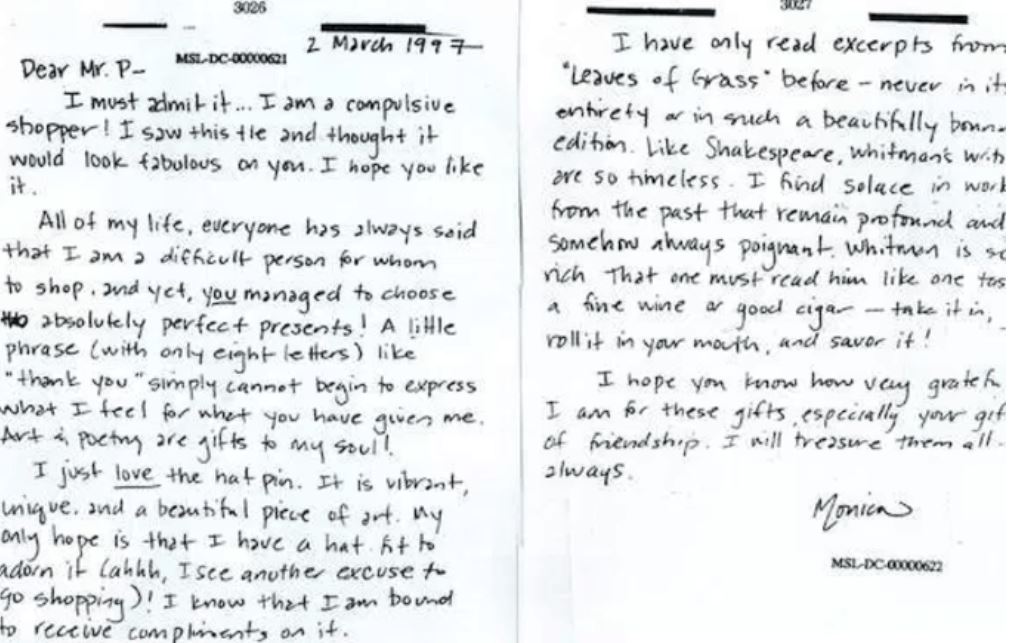 3026
2 March 1997
MSL-DC-00000621
Dear Mr. P-
I must admit it... I am a compulsive
shopper! I saw this tie and thought it
would look fabulous on you. I hope you like
it.
All of my life, everyone has always said
that I am a difficult person for whom
to shop. and yet, you managed to choose
absolutely perfect presents! A little
phrase (with only eight letters) like
"thank you" simply cannot begin to express
what I feel for what you have given me.
Art & poetry are gifts to my soul!
I just love the hat pin. It is vibrant,
unique. and a beautiful piece of art. My
only hope is that I have a hat fit to
adorn it (ahhh, I see another excuse to
go shopping)! I know that I am bound
to receive compliments on it.
3027
I have only read excerpts from
"Leaves of Grass" before - never in its
entirety or in such a beautifully boun
edition. Like Shakespeare, Whitman's writi
are so timeless. I find solace in work
from the past that remain profound and
somehow always poignant. Whitman is so
rich That one must read him like one tas
a fine wine or good cigar - take it in,
roll it in your mouth, and savor it!
I hope you know how very gratefu
I am for these gifts, especially your gif
of friendship. I will treasure them all.
always.
Monica
MSL-DC-00000622